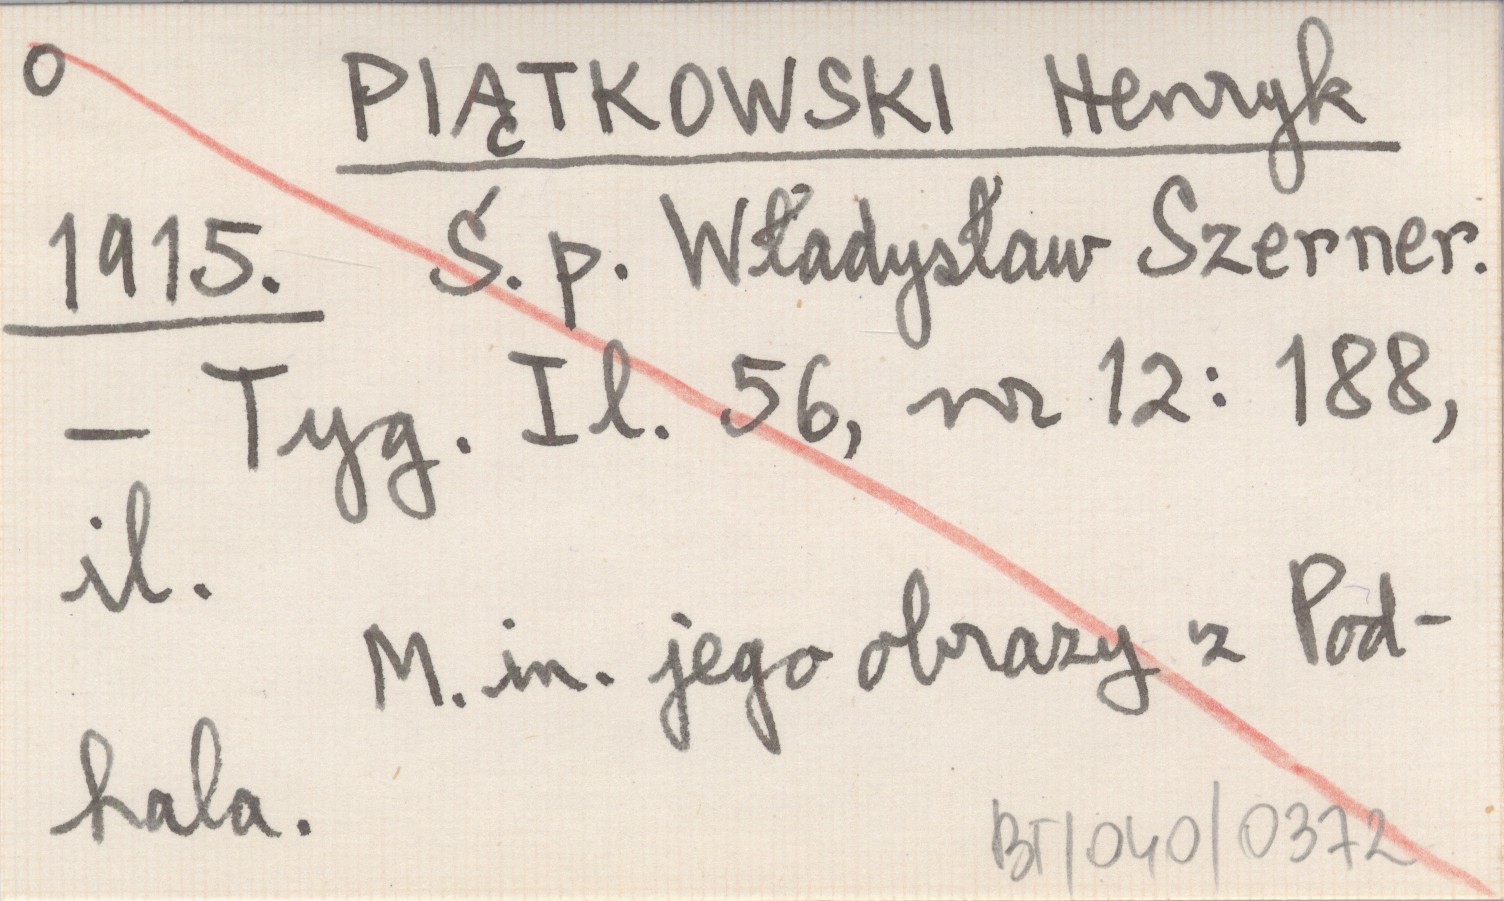 o PIĄTKOWSKI Henryk
1915. Ś.p. Władysław Szerner.
– Tyg. Il. 56, nr 12: 188,
il.
M. in. jego obrazy z Pod-
hala.
BT/040/0372